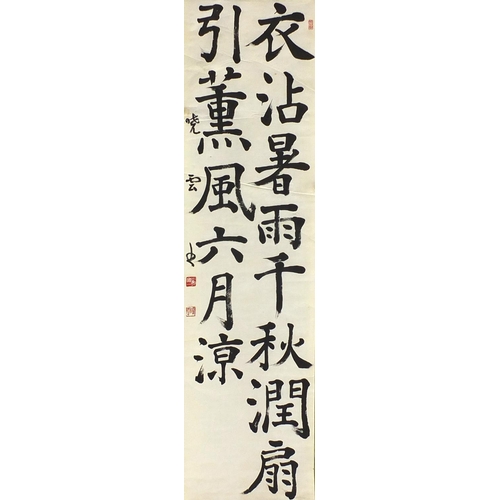 衣沾暑雨千秋潤扇
引薰風六月涼
曉雲